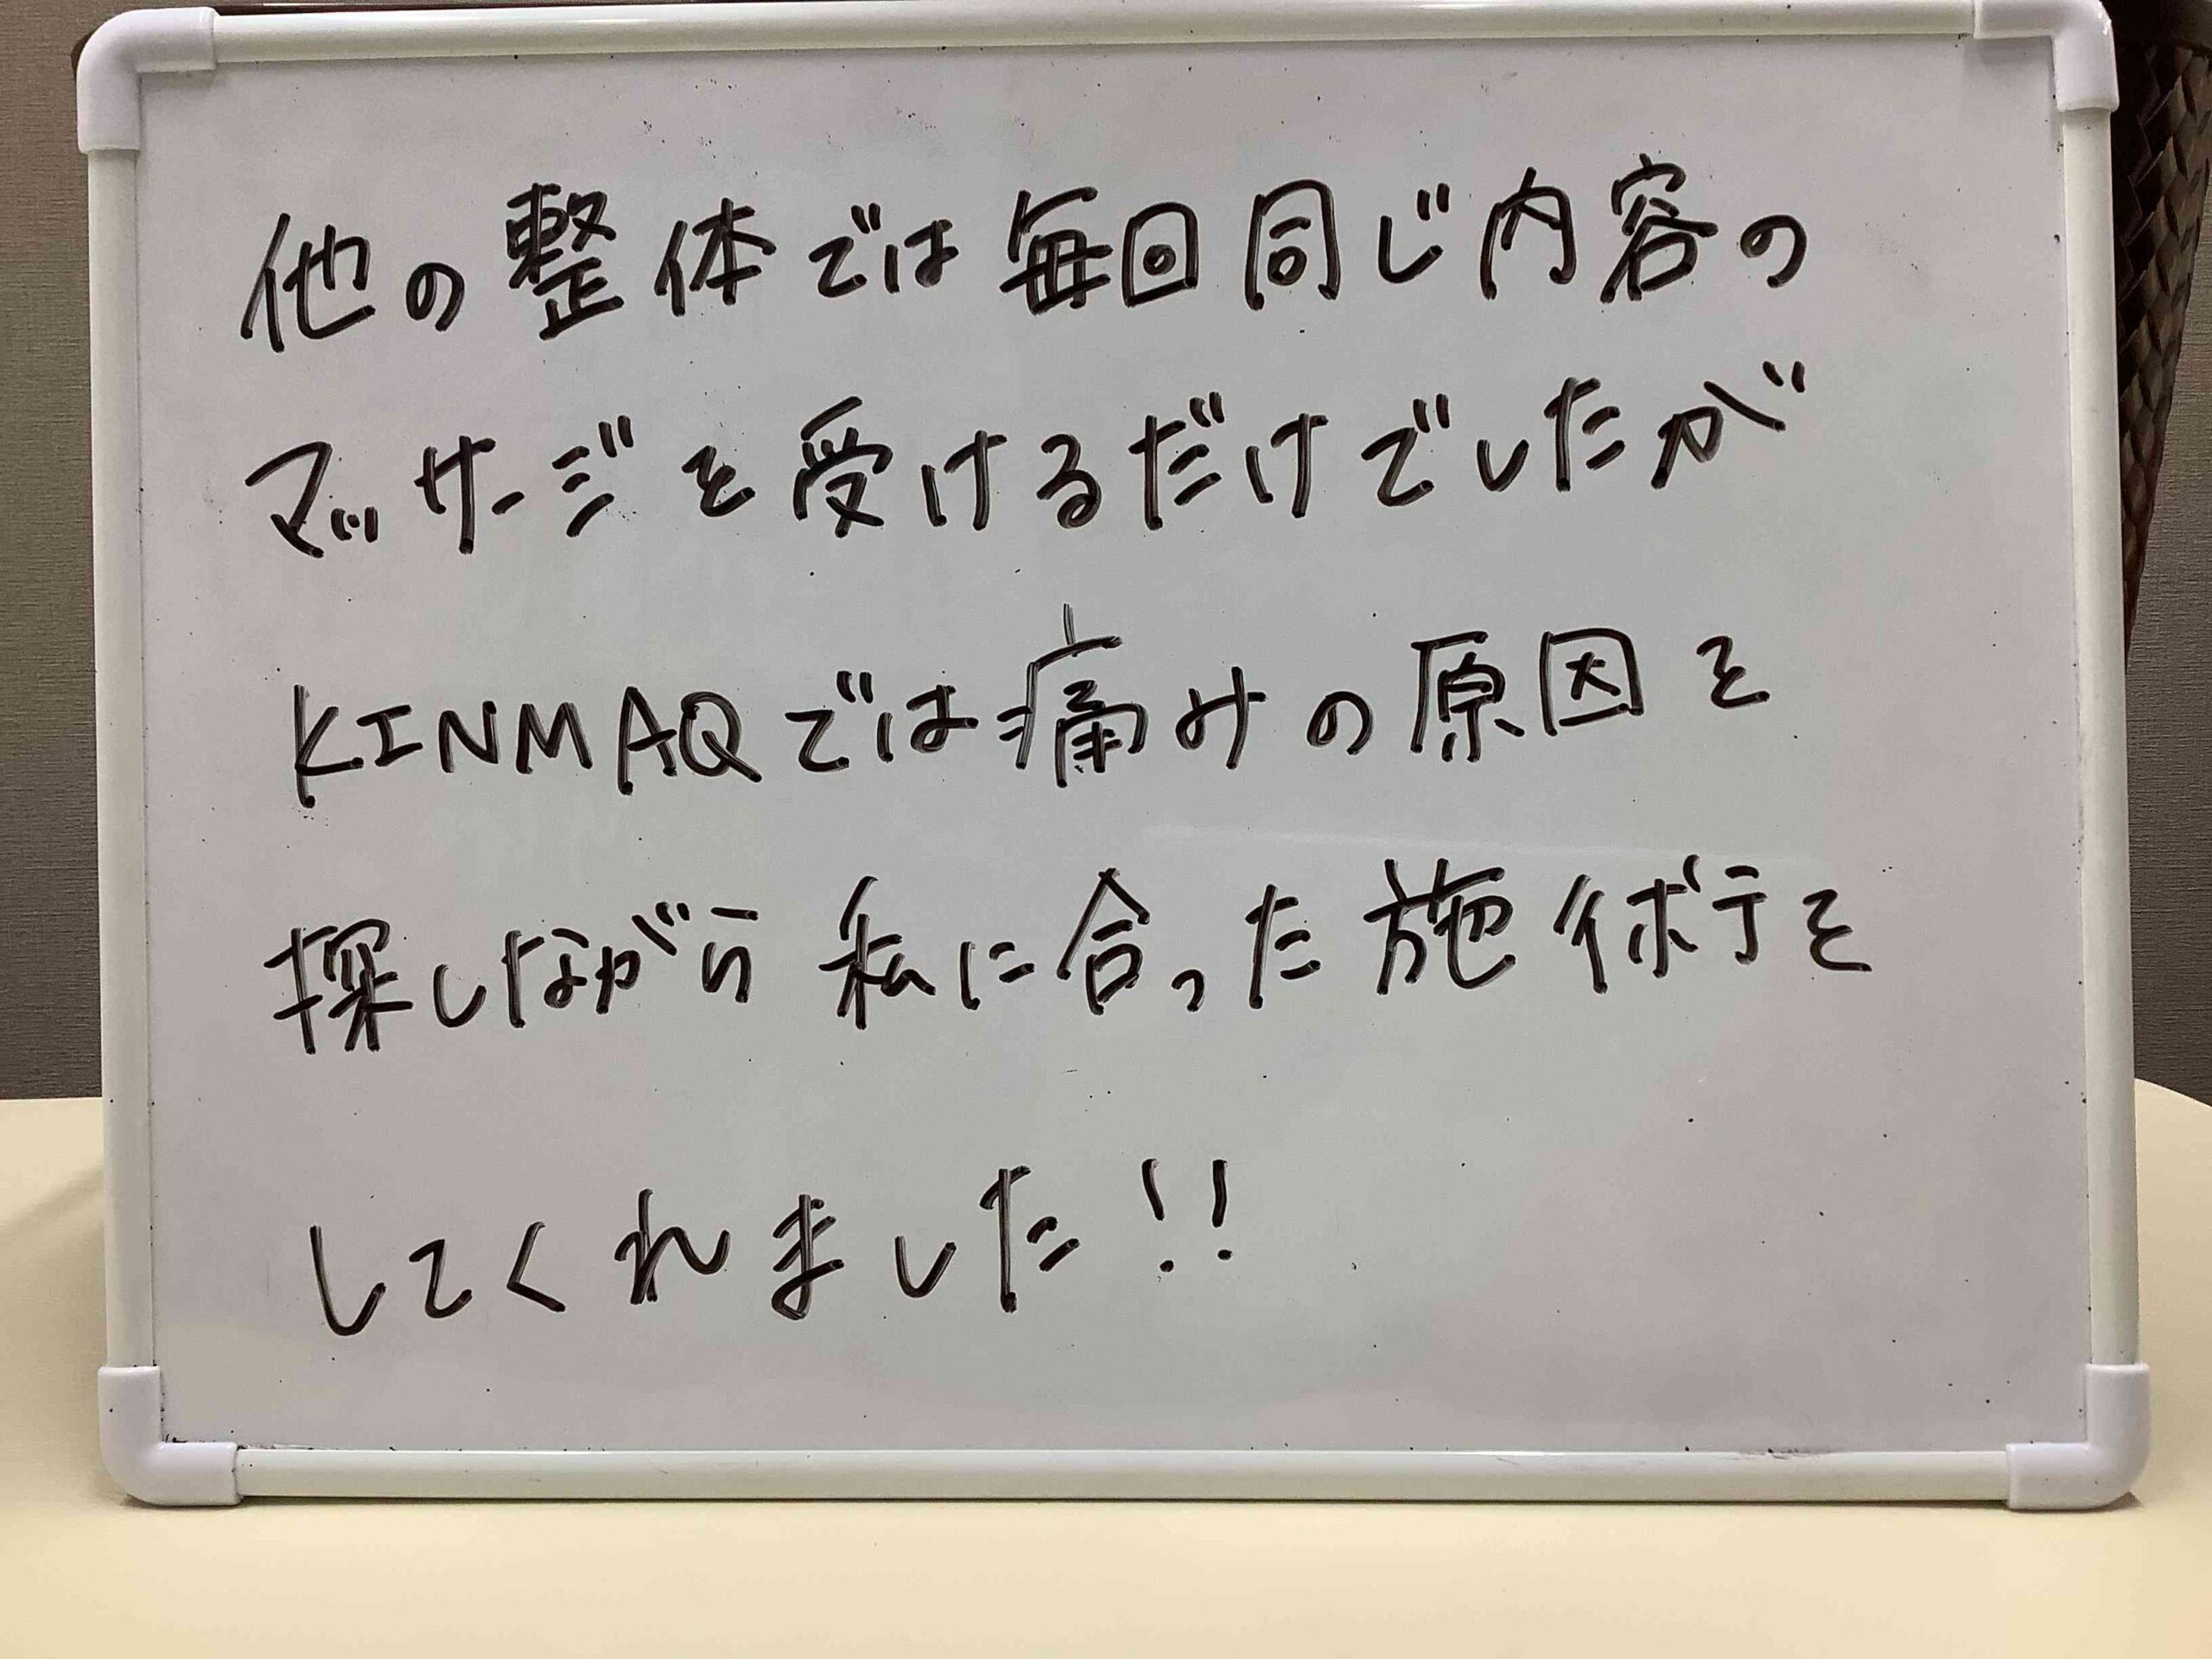 他の整体では毎回同じ内容の
マッサージを受けるだけでしたが
KINMAQでは痛みの原因を
探しながら私に合った施術を
してくれました!!